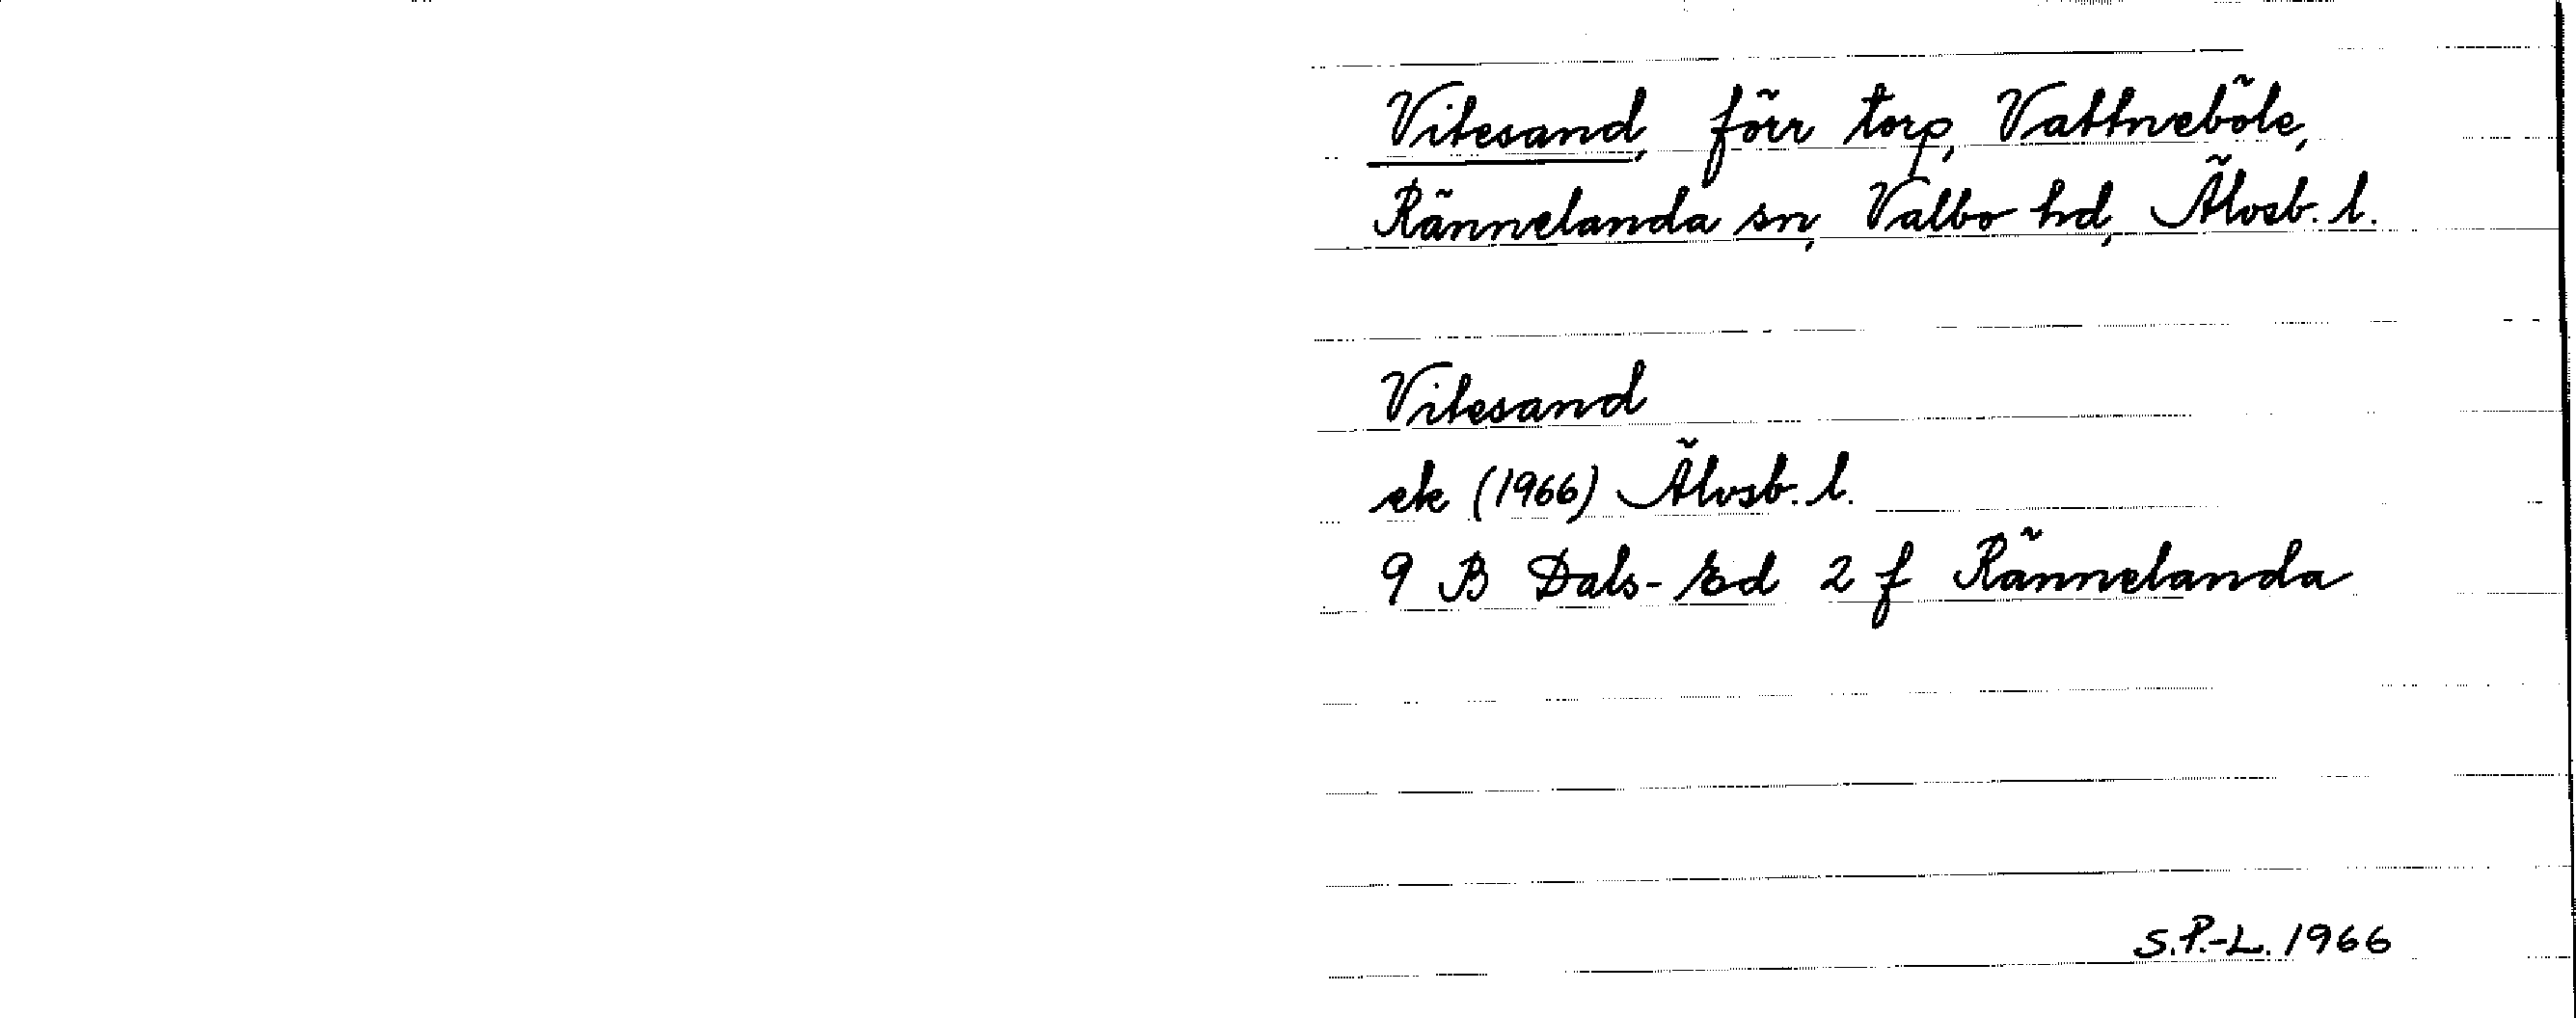 Vitesand, förr torp, Vattneböle,
Rännelanda sn, Valbo hd, Älvsb. l.
Vitesand
ek (1966) Älvsb. l.
9 B Dals-Ed 2 f Rännelanda
S.P.-L. 1966